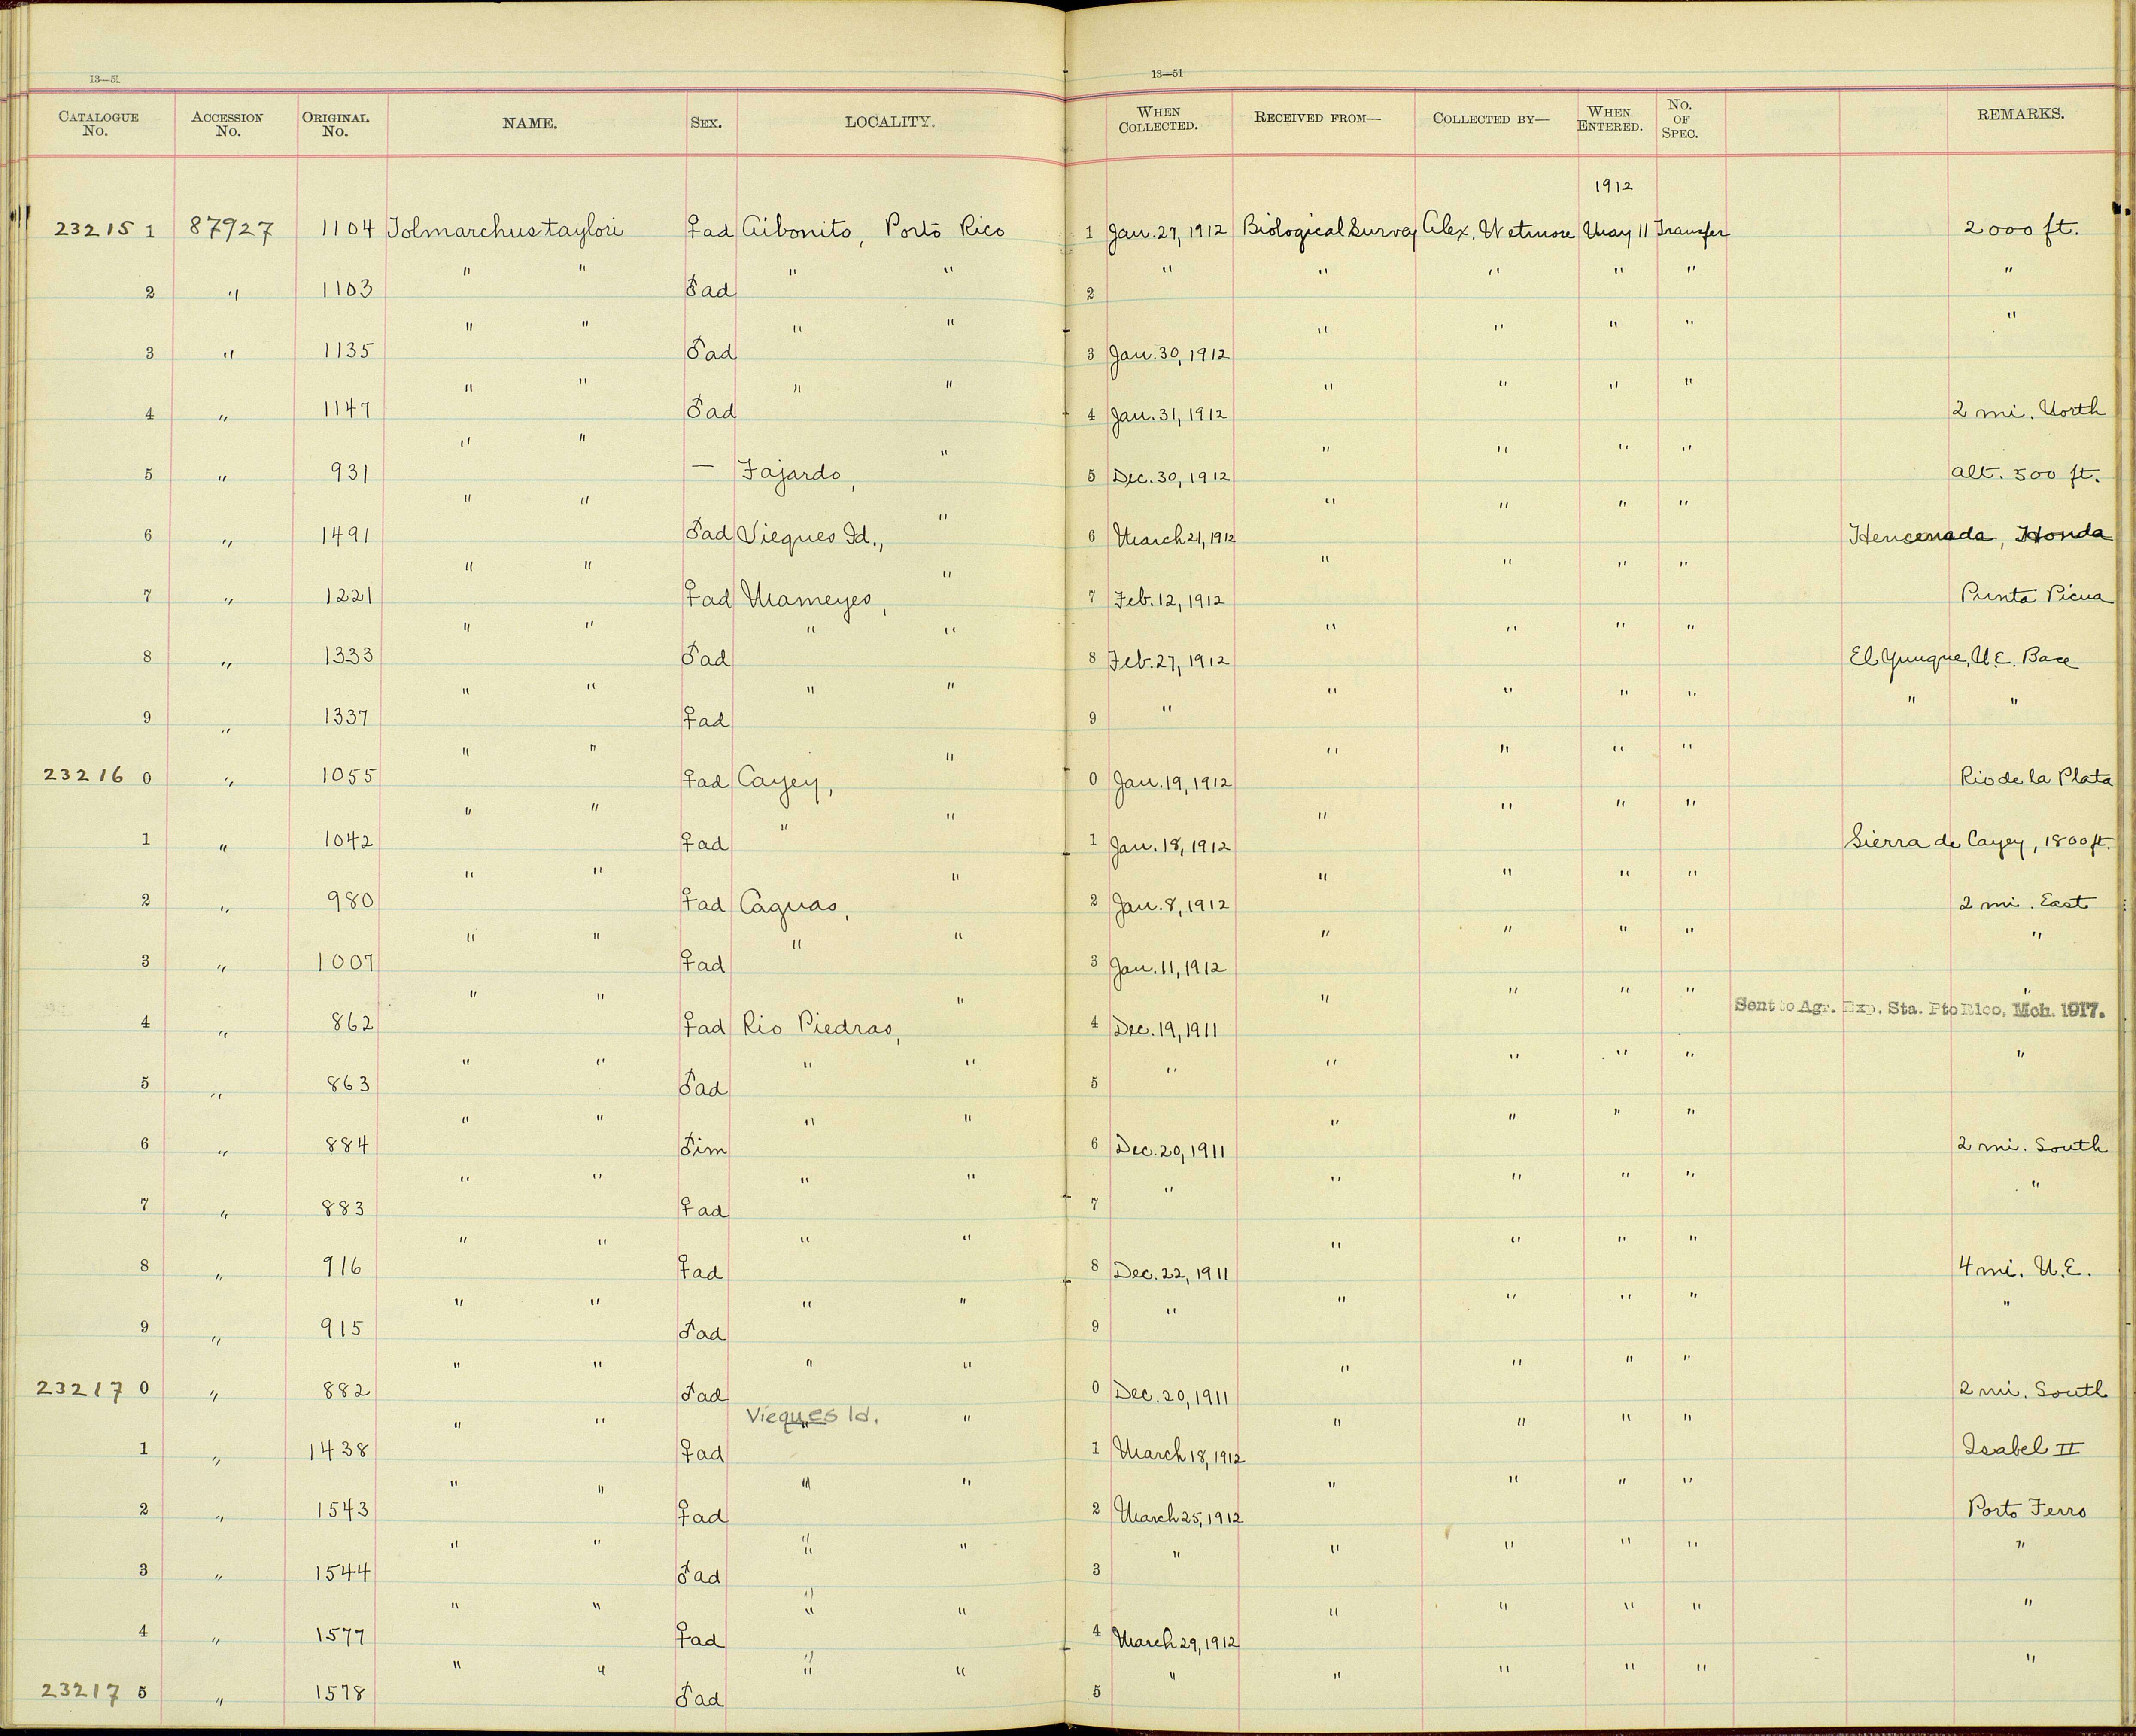 13—51 13—51
CATALOGUE No. ACCESSION No. ORIGINAL No. NAME. SEX. LOCALITY. WHEN COLLECTED. RECEIVED FROM— COLLECTED BY— WHEN ENTERED. No. OF SPEC. REMARKS.
1912
23215 1 87927 1104 Tolmarchus taylori ♀ad Aibonito, Porto Rico 1 Jan. 29, 1912 Biological Survey Alex. Wetmore May 11 Transfer 2000 ft.
2 " 1103 " " ♂ad " " 2 " " " " " "
3 " 1135 " " ♂ad " " 3 Jan. 30, 1912 " " " " "
4 " 1147 " " ♂ad " " 4 Jan. 31, 1912 " " " " 2 mi. North
5 " 931 " " — Fajardo, " 5 Dec. 30, 1912 " " " " alt. 500 ft.
6 " 1491 " " ♂ad Vieques Id., " 6 March 21, 1912 " " " " Hencenada, Honda
7 " 1221 " " ♀ad Mameyes, " 7 Feb. 12, 1912 " " " " Punta Picua
8 " 1333 " " ♂ad " " 8 Feb. 27, 1912 " " " " El Yunque, N.E. Base
9 " 1337 " " ♀ad " " 9 " " " " " " "
23216 0 " 1055 " " ♀ad Cayey, " 0 Jan. 19, 1912 " " " " Rio de la Plata
1 " 1042 " " ♀ad " " 1 Jan. 18, 1912 " " " " Sierra de Cayey, 1800 ft.
2 " 980 " " ♀ad Caguas, " 2 Jan. 8, 1912 " " " " 2 mi. East
3 " 1007 " " ♀ad " " 3 Jan. 11, 1912 " " " " "
4 " 862 " " ♀ad Rio Piedras, " 4 Dec. 19, 1911 " " " " " Sent to Agr. Exp. Sta. Pto Rico, Mch. 1917.
5 " 863 " " ♂ad " " 5 " " " " " "
6 " 884 " " ♂im " " 6 Dec. 20, 1911 " " " " 2 mi. South
7 " 883 " " ♀ad " " 7 " " " " " "
8 " 916 " " ♀ad " " 8 Dec. 22, 1911 " " " " 4 mi. N.E.
9 " 915 " " ♂ad " " 9 " " " " " "
23217 0 " 882 " " ♂ad " " 0 Dec. 20, 1911 " " " " 2 mi. South
1 " 1438 " " ♀ad Vieques Id. " " 1 March 18, 1912 " " " " Isabel II
2 " 1543 " " ♀ad " " 2 March 25, 1912 " " " " Porto Ferro
3 " 1544 " " ♂ad " " " 3 " " " " " "
4 " 1577 " " ♀ad " " " 4 March 29, 1912 " " " " "
23217 5 " 1578 " " ♂ad " " " 5 " " " " " "